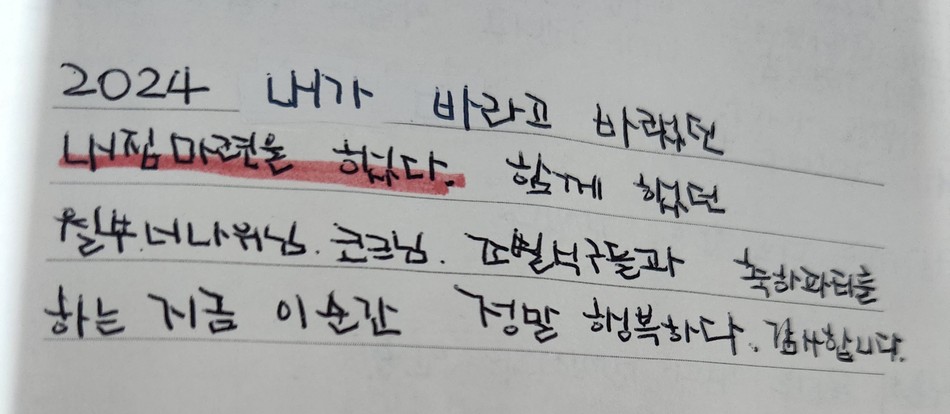 2024 내가 바라고 바랬던
내집마련을 했다. 함께 했던
월부.너나위님.코크님. 조별식구들과 축하파티를
하는 지금 이 순간 정말 행복하다. 감사합니다.